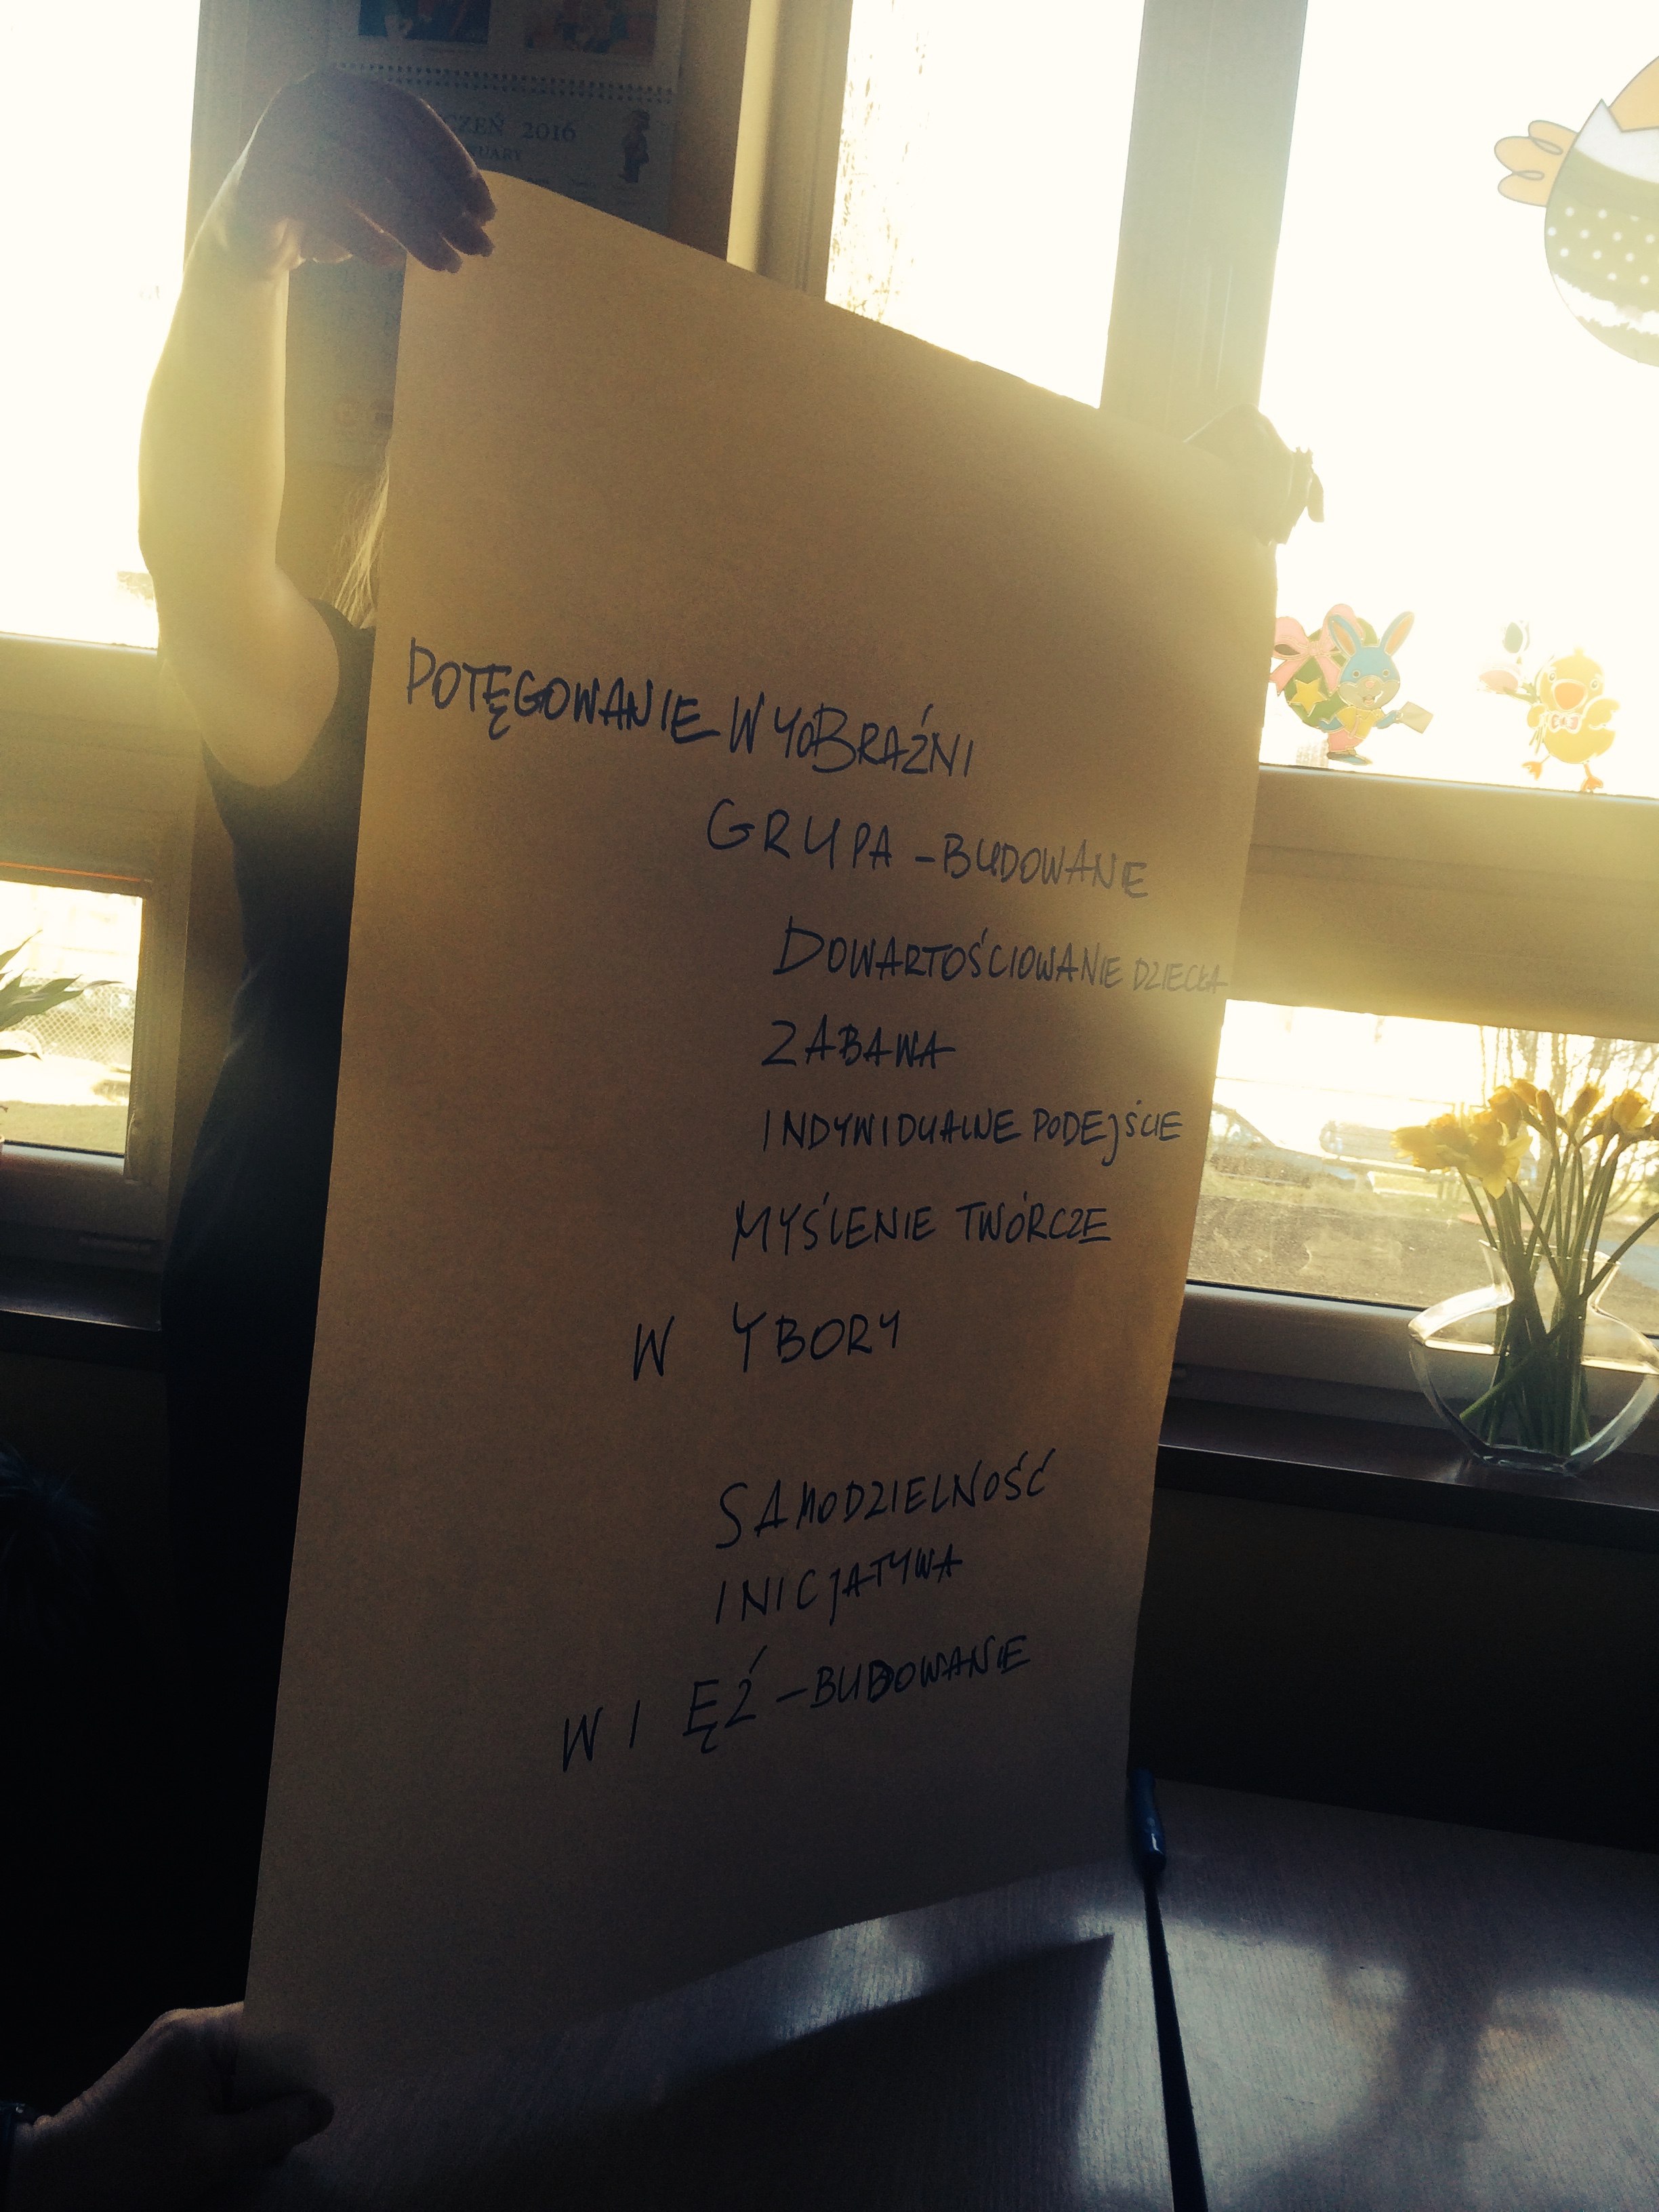 CZEŃ 2016
UARY
POTĘGOWANIE WYOBRAŹNI
GRUPA - BUDOWANE
DOWARTOŚCIOWANIE DZIECKA
ZABAWA
INDYWIDUALNE PODEJŚCIE
MYŚLENIE TWÓRCZE
W YBORY
SAMODZIELNOŚĆ
INICJATYWA
W I ĘŹ - BUDOWANIE